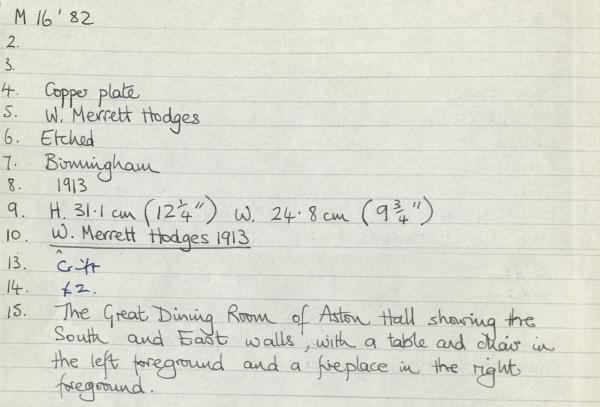 M 16'82
2.
3.
4. Copper plate
5. W. Merrett Hodges
6. Etched
7. Birmingham
8. 1913
9. H. 31·1 cm (12¼") W. 24·8 cm (9¾")
10. W. Merrett Hodges 1913
13. Gift
14. £2.
15. The Great Dining Room of Aston Hall showing the
South and East walls, with a table and chair in
the left foreground and a fireplace in the right
foreground.